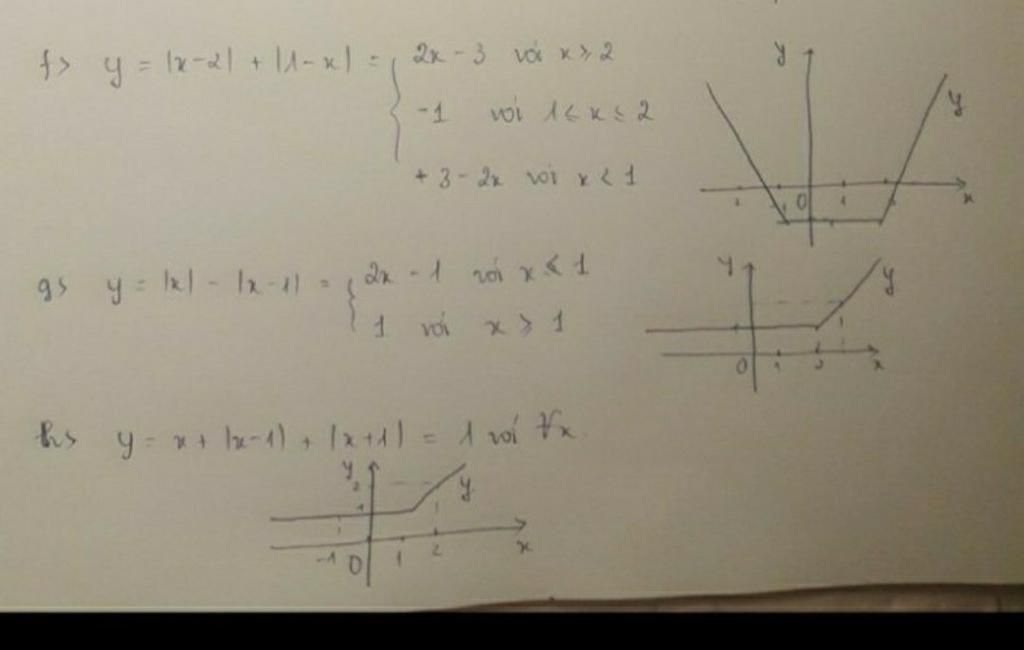 f> y = |x-2| + |1-x| = { 2x - 3 với x ≥ 2
-1 với 1 ≤ x ≤ 2
+ 3 - 2x với x < 1
y
y
1
O
x
g> y = |x| - |x-1| = { 2x - 1 với x ≤ 1
1 với x ≥ 1
y
y
O 1 2 x
h> y = x + |x-1| + |x+1| = 1 với ∀x
y
2
y
1
-1 O 1 2 x